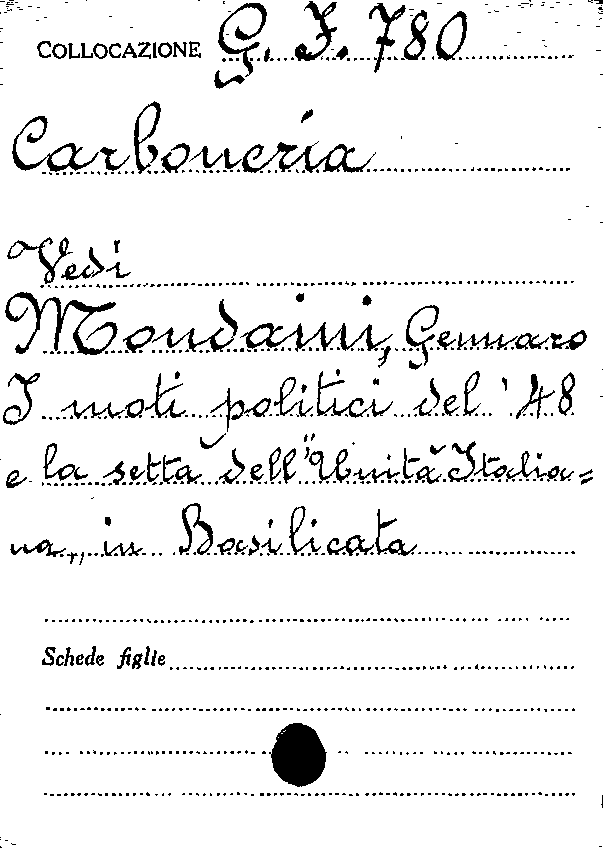 COLLOCAZIONE G. I. 780
Carboneria
Vedi
Mondaini, Gennaro
I moti politici del '48
e la setta dell' "Unità Italia=
na„ in Basilicata
Schede figlie